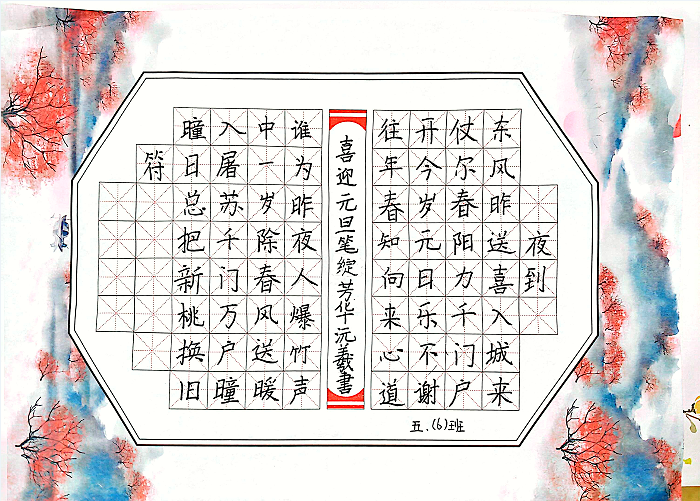 夜到
东风昨送喜入城来
仗尔春阳力千门户
开今岁元日乐不谢
往年春知向来心道
喜迎元旦笔绽芳华 沅羲書
谁为昨夜人爆竹声
中一岁除春风送暖
入屠苏千门万户瞳
瞳日总把新桃换旧
符
五.(6)班